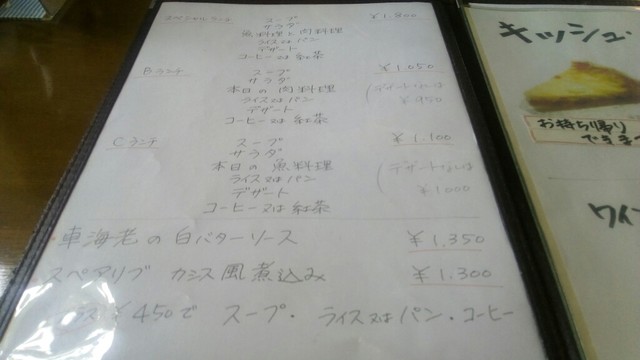 スペシャルランチ スープ ¥1,800
サラダ
魚料理と肉料理
ライス又はパン
デザート
コーヒー又は紅茶
Bランチ スープ ¥1,050
サラダ
本日の肉料理 (デザートなしは
ライス又はパン ¥950
デザート
コーヒー又は紅茶
Cランチ スープ ¥1,100
サラダ
本日の魚料理 (デザートなしは
ライス又はパン ¥1000
デザート
コーヒー又は紅茶
車海老の白バターソース ¥1,350
スペアリブ カシス風煮込み ¥1,300
プラス¥450で スープ・ライス又はパン・コーヒー
キッシュ
お持ち帰り
できま
ワイ